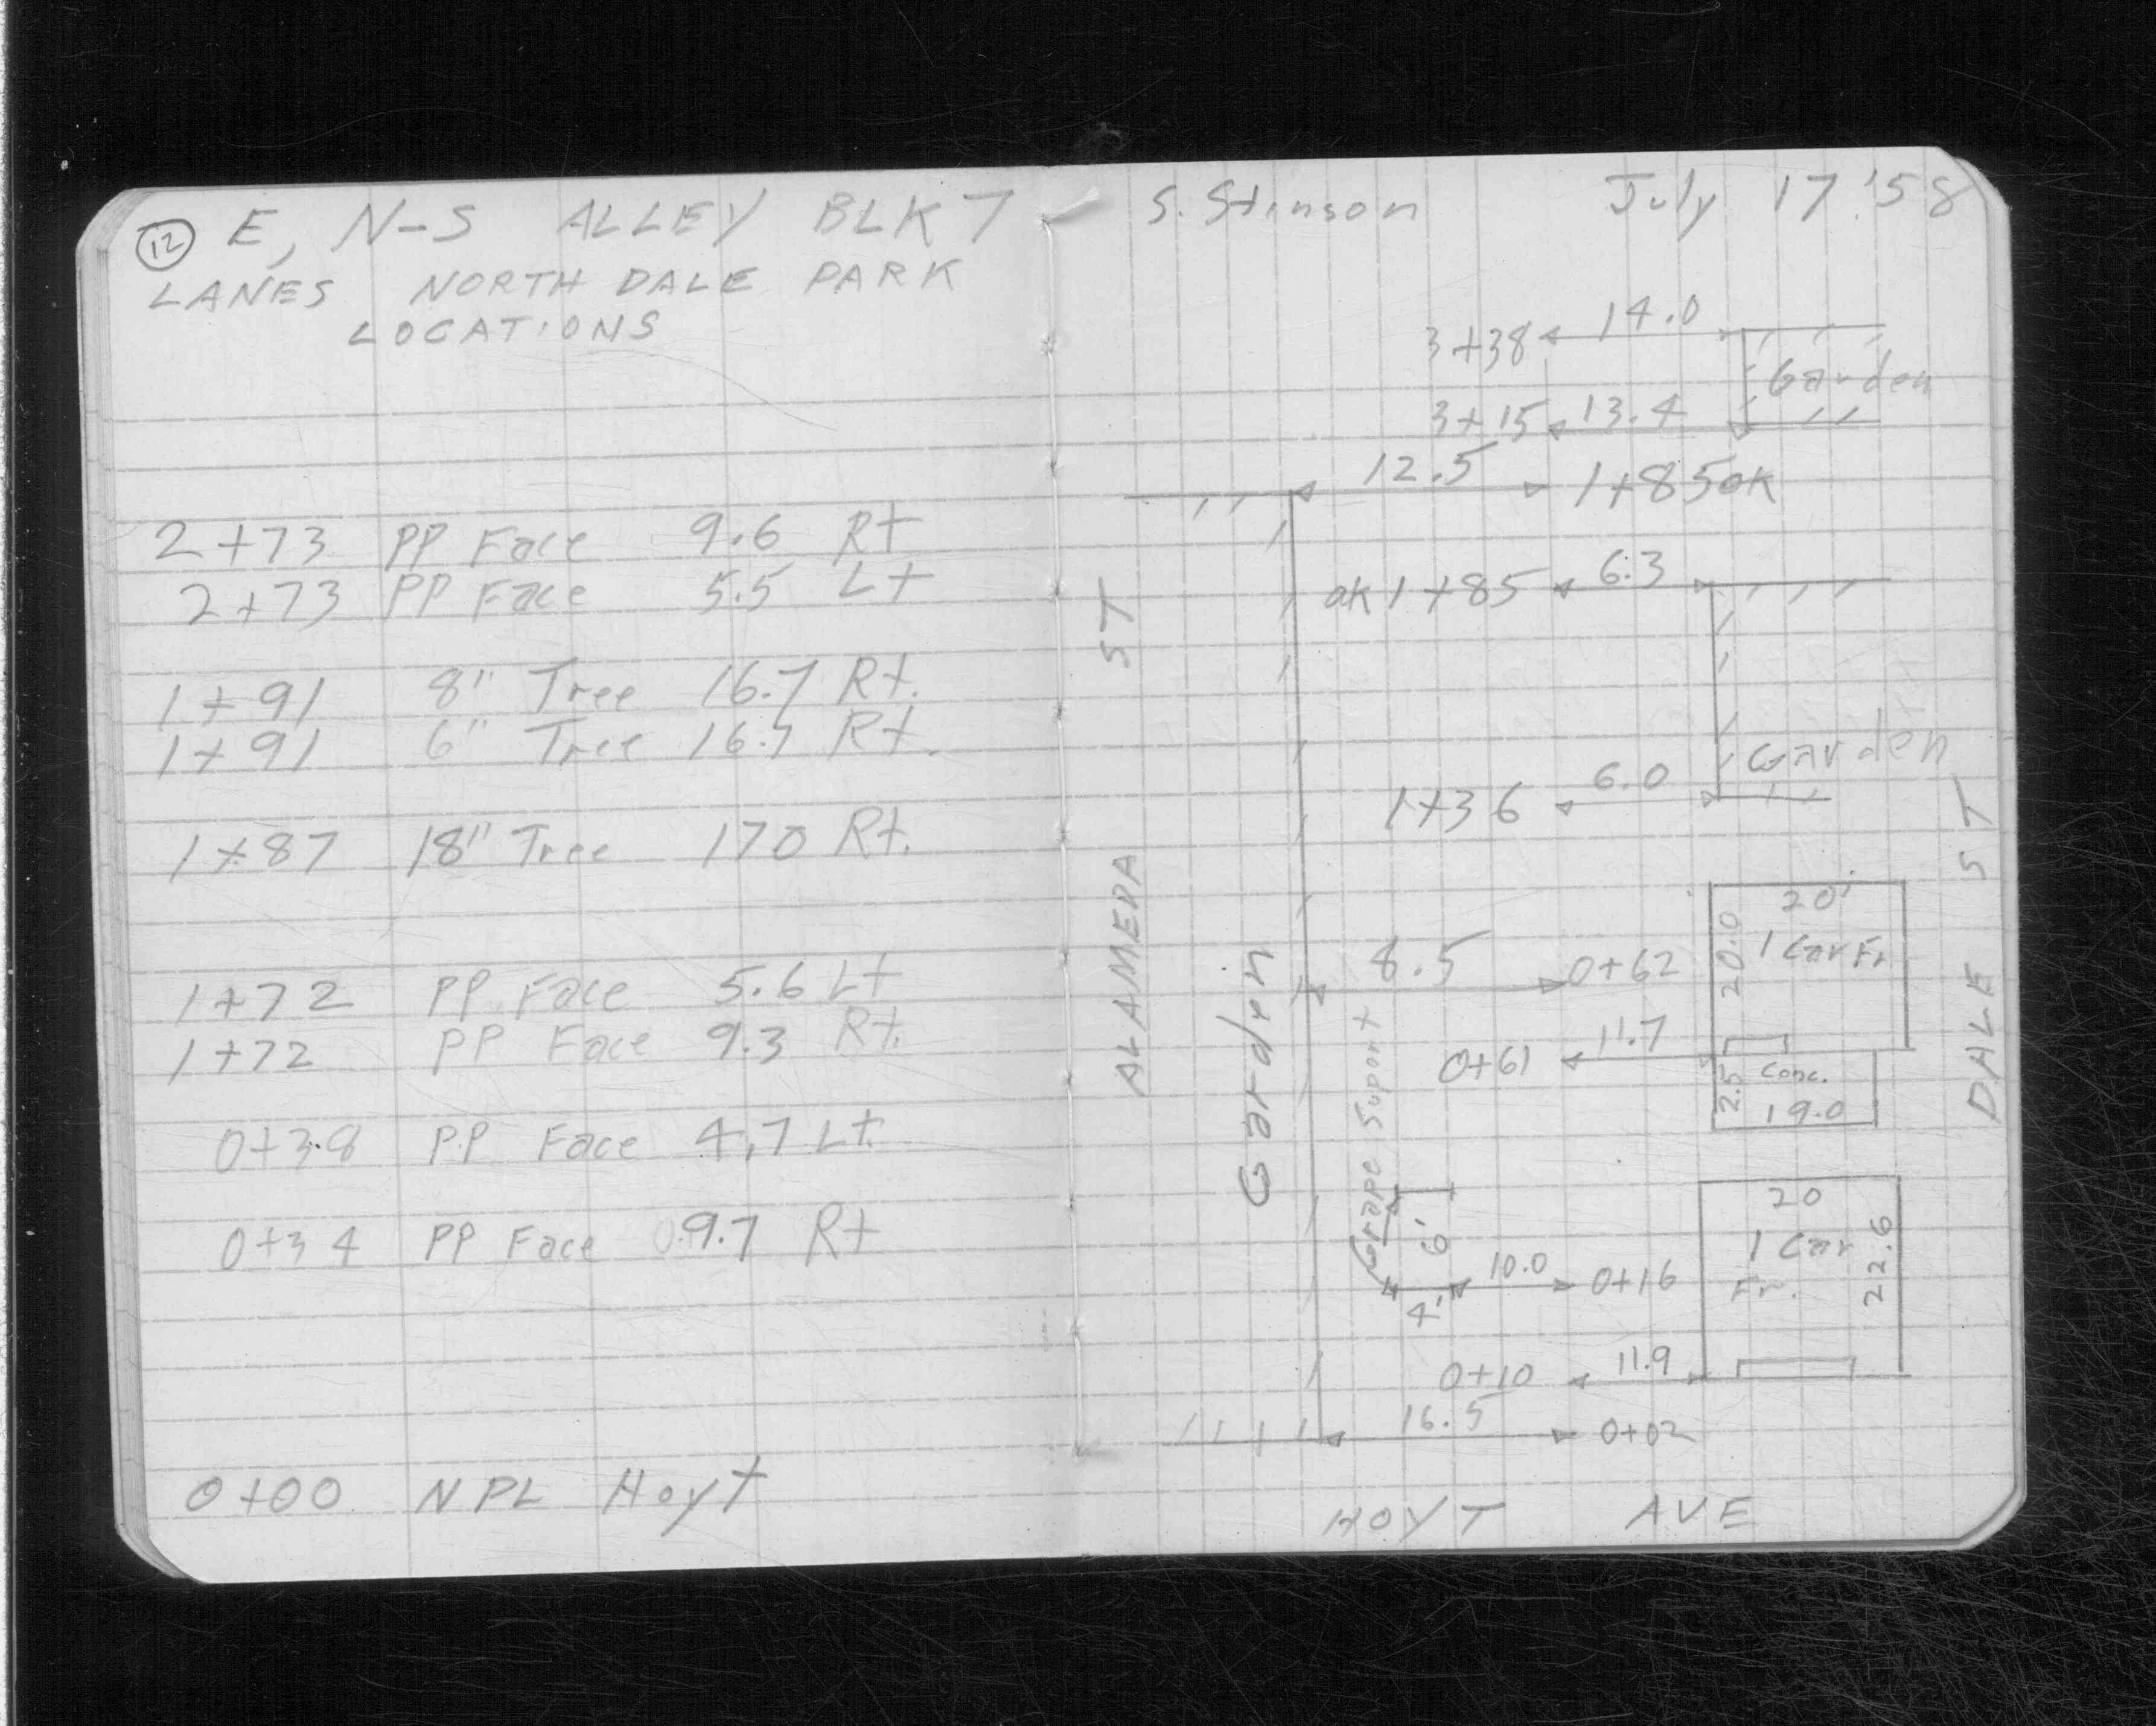 12 E, N-S ALLEY BLK 7
LANES NORTH DALE PARK
LOCATIONS
2+73 PP Face 9.6 Rt
2+73 PP Face 5.5 Lt
1+91 8" Tree 16.7 Rt.
1+91 6" Tree 16.7 Rt.
1+87 18" Tree 170 Rt.
1+72 PP Face 5.6 Lt
1+72 PP Face 9.3 Rt.
0+38 P.P Face 4.7 Lt.
0+34 PP Face 9.7 Rt
0+00 NPL Hoyt
S. Stinson July 17 '58
3+38 14.0
Garden
3+15 13.4
12.5 1+85 ok
ok 1+85 6.3
ALAMEDA ST
Garden
1+36 6.0
DALE ST
20'
20.0
1 Car Fr
Garden
8.5 0+62
0+61 11.7
2.5 Conc.
19.0
Grape Suport
6'
4'
10.0 0+16
20
1 Car
Fr.
22.6
0+10 11.9
16.5 0+02
HOYT AVE